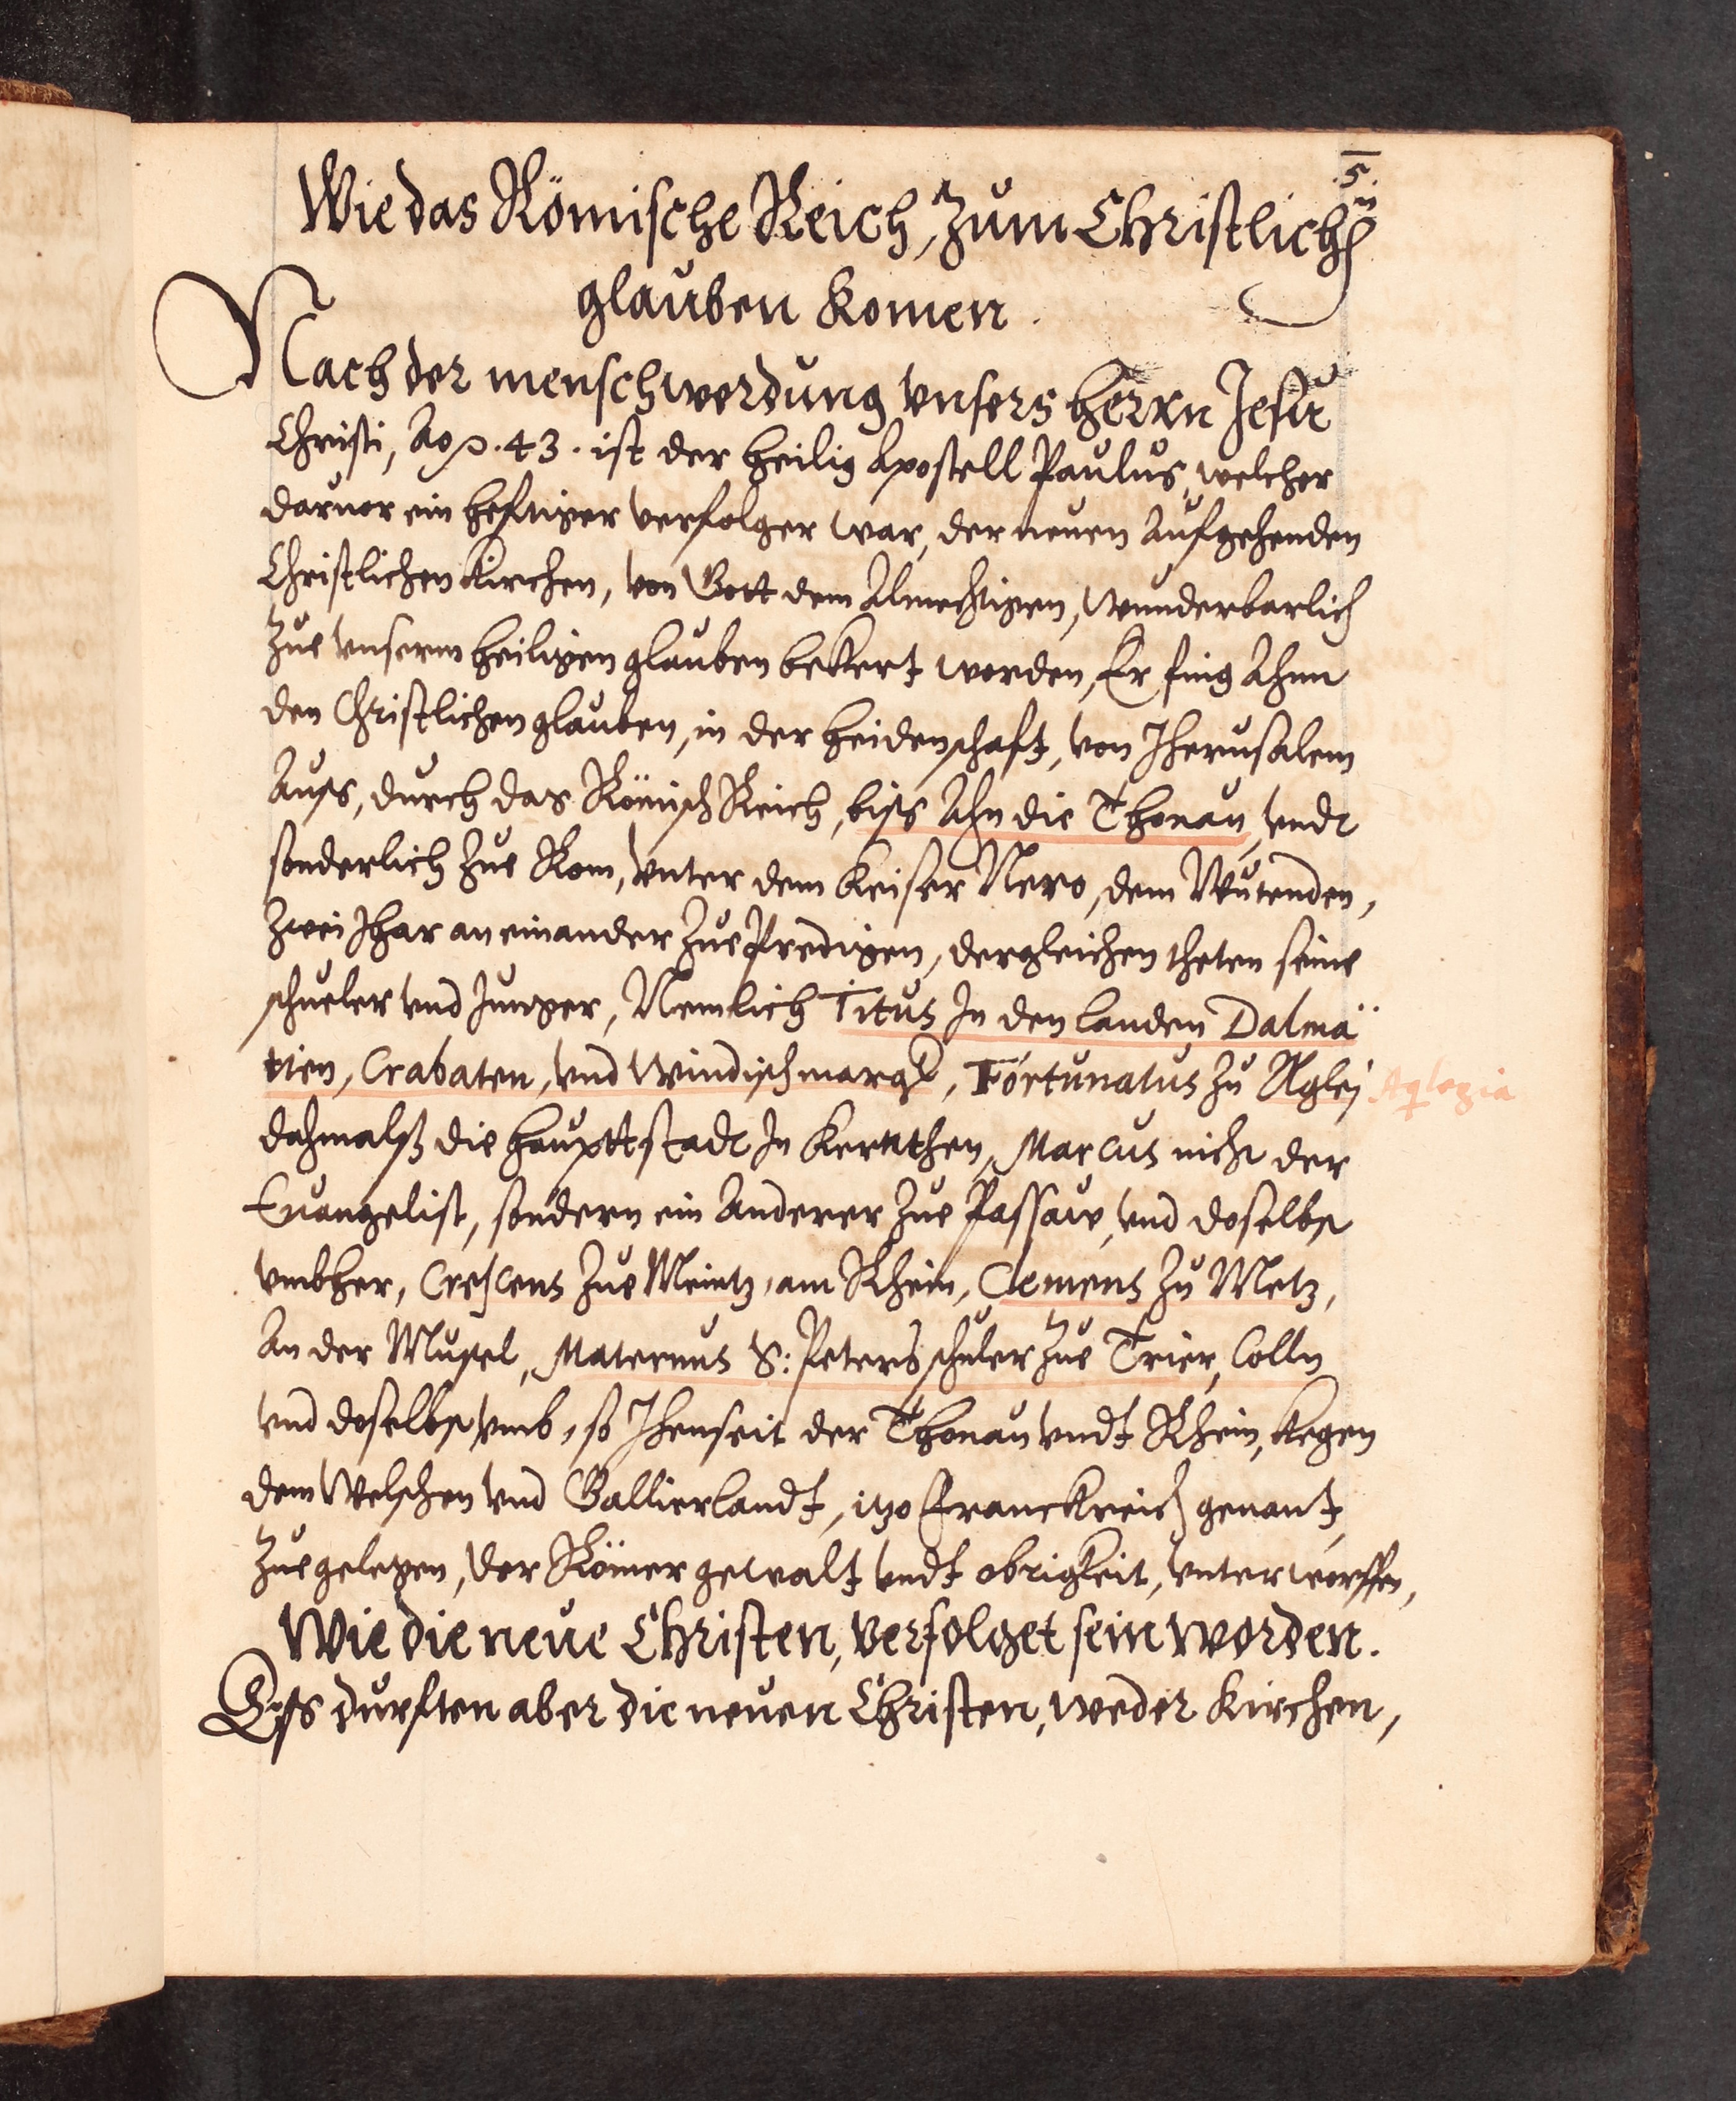 .5.
Wie das Römische Reich, zum Christlichen
glauben komen.
Nach der menschwerdung vnsers herrn Jesu
Christi, Ao 43. ist der heilig Apostell Paulus, welcher
daruor ein hefftiger verfolger war, der neuen Aufgehenden
Christlichen Kirchen, von Gott dem Almechtigen, wunderbarlich
zue vnserm heiligen glauben bekert worden, Er fing Ahnn
den Christlichen glauben, in der heidenschaft, von Jherusalem
Auss, durch das Römisch Reich, biss Ahn die Thonau, vndt
sonderlich zue Rom, vnter dem Keiser Nero, dem Wütenden,
zwei Jhar an einander zue Predigen, dergleichen theten seine
schueler vnd Junger, Nemlich Titus In den landen Dalma
tien, Crabaten, vnd Windischmargk, Fortunatus zu Aglej
Aqlegia
dahmalß die hauptstadt In Kernthen, Marcus nicht der
Euangelist, sondern ein Anderer zue Passaw, vnd doselbst
vmbher, Crescens zue Meintz, am Rhein, Clemens zu Metz,
An der Musel, Maternus S: Peters schuler zue Trier, Colln
vnd doselbst vmb, so Jhenseit der Thonau vndt Rhein, kegen
dem Welschen vnd Gallierlandt, itzo Franckreich genant,
zue gelegen, der Römer gewalt vndt obrigkeit, vnterworffen,
Wie die neue Christen, verfolget sein worden.
Ess durften aber die neuen Christen, weder Kirchen,